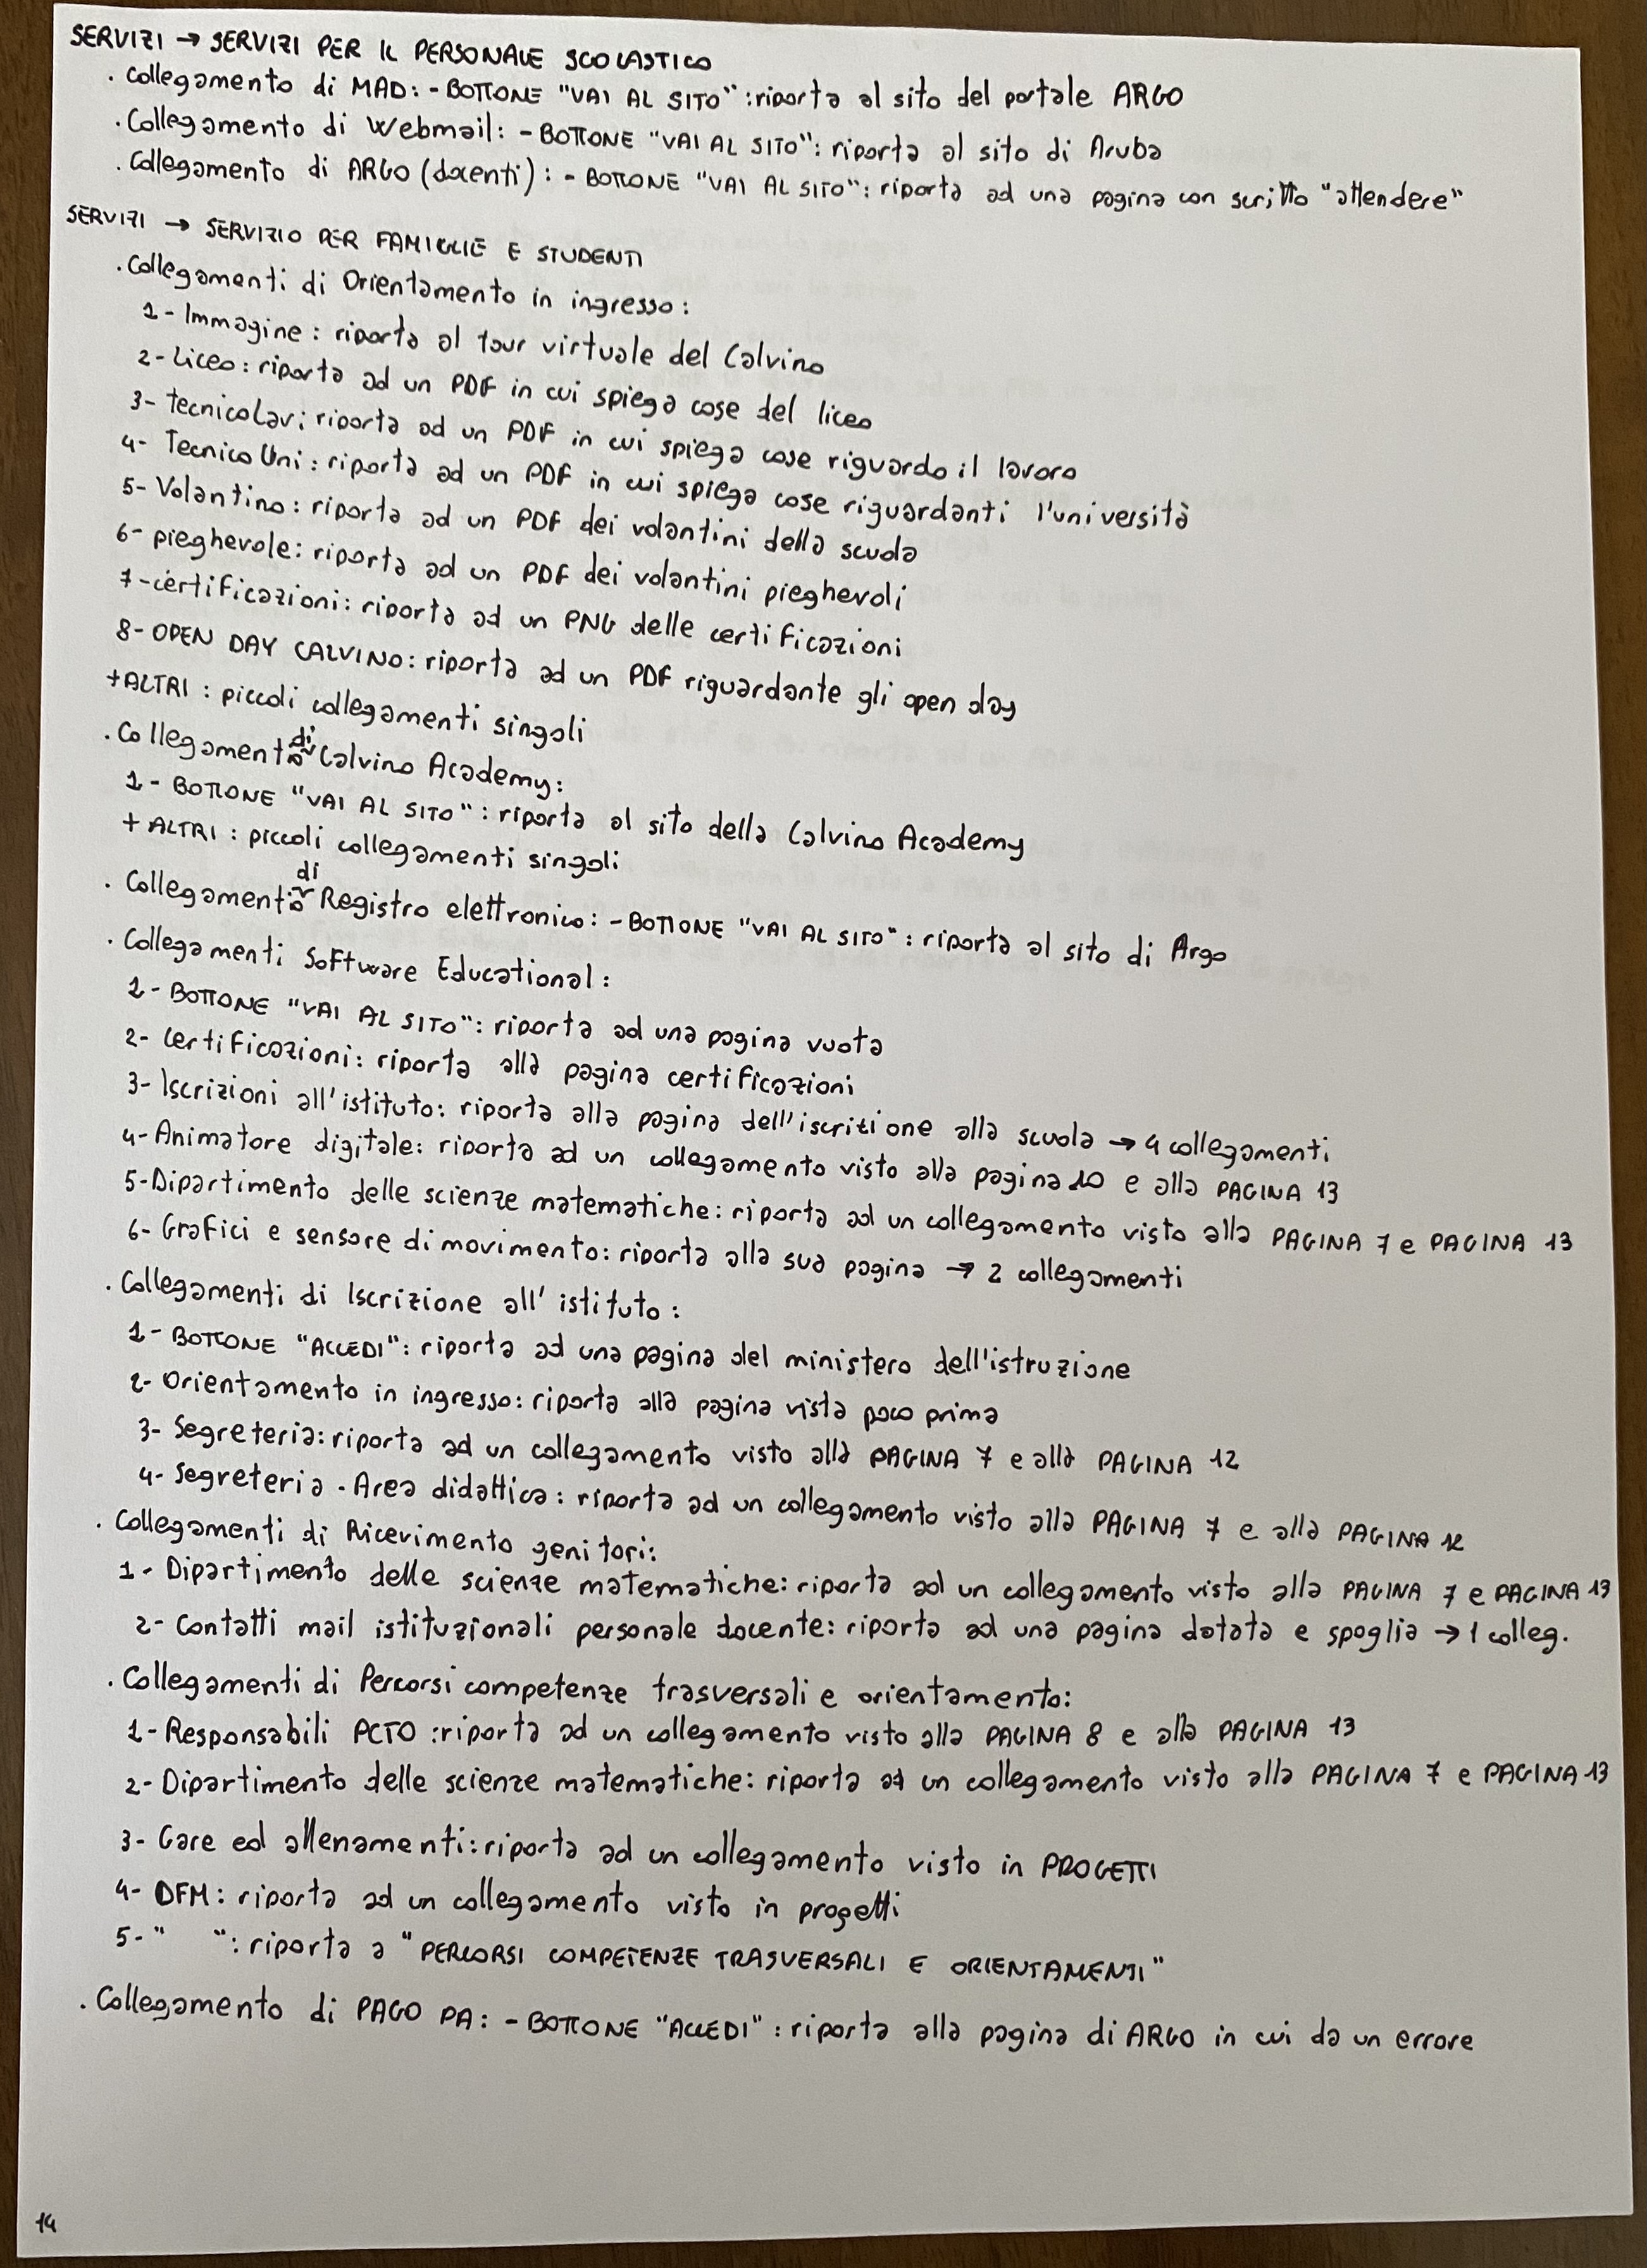 SERVIZI → SERVIZI PER IL PERSONALE SCOLASTICO
. Collegamento di MAD: - BOTTONE "VAI AL SITO" : riporta al sito del portale ARGO
. Collegamento di Webmail: - BOTTONE "VAI AL SITO": riporta al sito di Aruba
. Collegamento di ARGO (docenti): - BOTTONE "VAI AL SITO": riporta ad una pagina con scritto "attendere"
SERVIZI → SERVIZIO PER FAMIGLIE E STUDENTI
. Collegamenti di Orientamento in ingresso:
1- Immagine: riporta al tour virtuale del Calvino
2- Liceo: riporta ad un PDF in cui spiega cose del liceo
3- tecnicoLav: riporta ad un PDF in cui spiega cose riguardo il lavoro
4- Tecnico Uni: riporta ad un PDF in cui spiega cose riguardanti l'università
5- Volantino: riporta ad un PDF dei volantini della scuola
6- pieghevole: riporta ad un PDF dei volantini pieghevoli
7- certificazioni: riporta ad un PNG delle certificazioni
8- OPEN DAY CALVINO: riporta ad un PDF riguardante gli open day
+ALTRI : piccoli collegamenti singoli
. Collegamento di Calvino Academy:
1- BOTTONE "VAI AL SITO": riporta al sito della Calvino Academy
+ ALTRI : piccoli collegamenti singoli
. Collegamento di Registro elettronico: - BOTTONE "VAI AL SITO": riporta al sito di Argo
. Collegamenti Software Educational:
1- BOTTONE "VAI AL SITO": riporta ad una pagina vuota
2- Certificazioni: riporta alla pagina certificazioni
3- Iscrizioni all'istituto: riporta alla pagina dell'iscrizione alla scuola → 4 collegamenti
4- Animatore digitale: riporta ad un collegamento visto alla pagina 10 e alla PAGINA 13
5- Dipartimento delle scienze matematiche: riporta ad un collegamento visto alla PAGINA 7 e PAGINA 13
6- Grafici e sensore di movimento: riporta alla sua pagina → 2 collegamenti
. Collegamenti di Iscrizione all'istituto:
1- BOTTONE "ACCEDI": riporta ad una pagina del ministero dell'istruzione
2- Orientamento in ingresso: riporta alla pagina vista poco prima
3- Segreteria: riporta ad un collegamento visto alla PAGINA 7 e alla PAGINA 12
4- Segreteria - Area didattica: riporta ad un collegamento visto alla PAGINA 7 e alla PAGINA 12
. Collegamenti di Ricevimento genitori:
1- Dipartimento delle scienze matematiche: riporta ad un collegamento visto alla PAGINA 7 e PAGINA 13
2- Contatti mail istituzionali personale docente: riporta ad una pagina datata e spoglia → 1 colleg.
. Collegamenti di Percorsi competenze trasversali e orientamento:
1- Responsabili PCTO : riporta ad un collegamento visto alla PAGINA 8 e alla PAGINA 13
2- Dipartimento delle scienze matematiche: riporta ad un collegamento visto alla PAGINA 7 e PAGINA 13
3- Gare ed allenamenti: riporta ad un collegamento visto in PROGETTI
4- DFM: riporta ad un collegamento visto in progetti
5- " ": riporta a "PERCORSI COMPETENZE TRASVERSALI E ORIENTAMENTI"
. Collegamento di PAGO PA: - BOTTONE "ACCEDI": riporta alla pagina di ARGO in cui da un errore
14